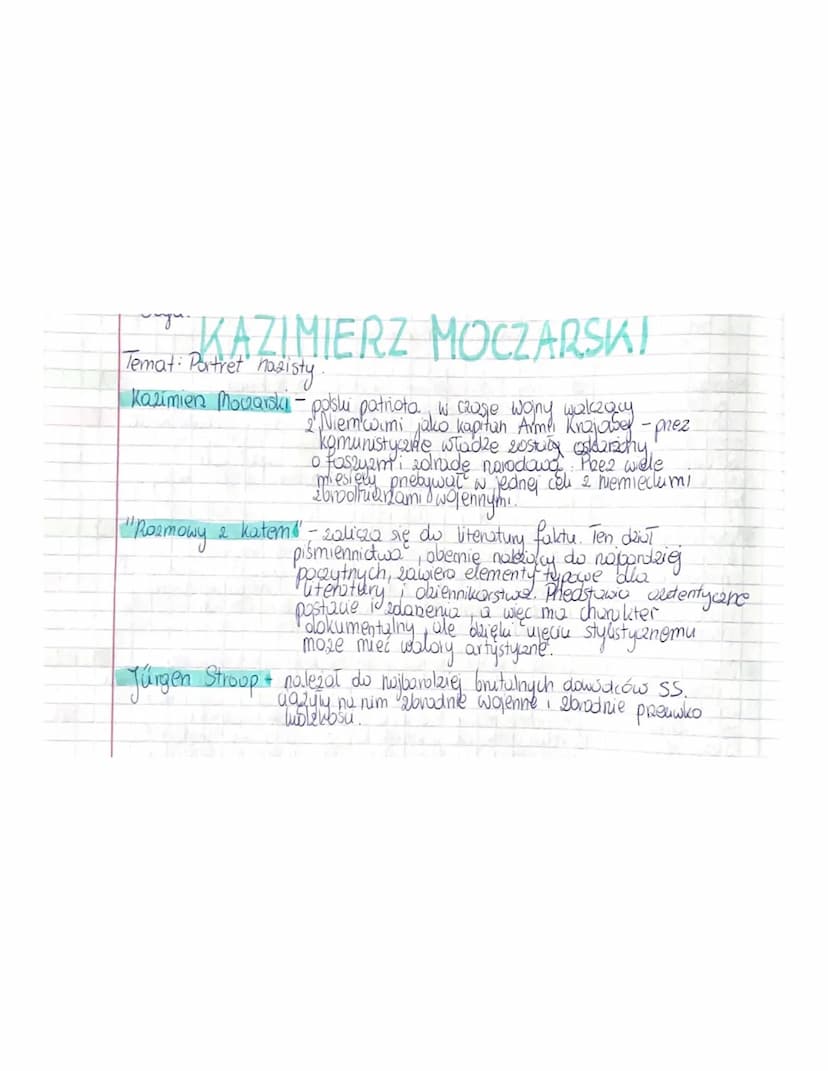 KAZIMIERZ MOCZARSKI
Temat: Portret nazisty.
Kazimierz Moczarski - polski patriota, w czasie wojny walczący
z Niemcami jako kapitan Armei Krajowej - przez
komunistyczne władze został oskarżony
o faszyzm i zdradę narodową. Przez wiele
miesięcy przebywał w jednej celi z niemieckimi
zbrodniarzami wojennymi.
"Rozmowy z katem" - zalicza się do literatury faktu. Ten dział
piśmiennictwa, obecnie należący do najbardziej
poczytnych, zawiera elementy typowe dla
literatury i dziennikarstwa. Przedstawia autentyczne
postacie i zdarzenia, a więc ma charakter
dokumentalny, ale dzięki ujęciu stylistycznemu
może mieć walory artystyczne.
Jürgen Stroop - należał do najbardziej brutalnych dowódców SS.
ciążyły na nim zbrodnie wojenne i zbrodnie przeciwko
ludzkości.